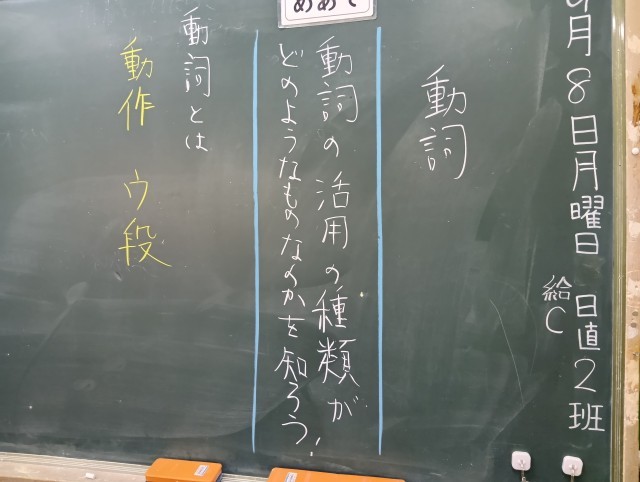 月8日月曜日 日直2班
給C
動詞
めあて
動詞の活用の種類が
どのようなものなのかを知ろう!
動詞とは
動作 ウ段